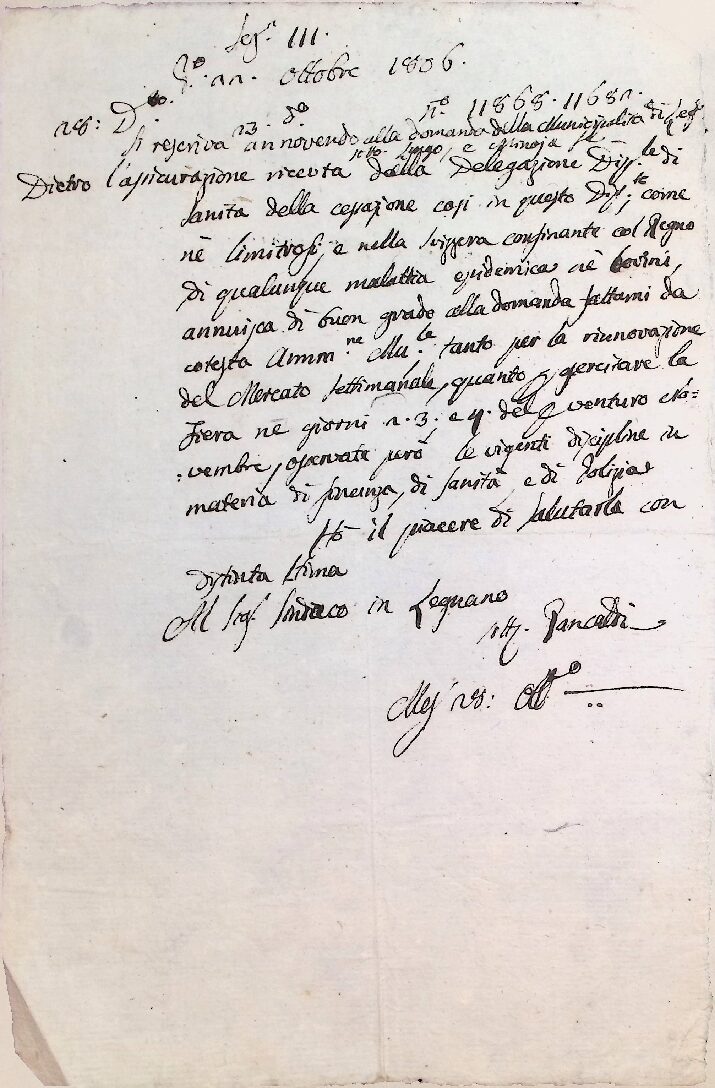 Seg.ª III.
D.º 22. Ottobre 1806.
28: D.to N.º 11868. 11682.
23. d.º
Si rescriva annovendo alla domanda della Municipalità di Leg.
sotto luogo, e
Dietro l'assicurazione ricevuta dalla Delegazione Dip.le di
Sanità della cessazione così in questo Dip.to, come
nè limitrofi, e nella Svizzera confinante col Regno
di qualunque malattia epidemica nè bovini,
annuisca di buon grado alla domanda fattami da
cotesta Amm.ne Mu.le tanto per la riunovazione
del Mercato Settimanale, quanto p esercitare la
Fiera ne giorni 2. 3. e 4. del p venturo No=
=vembre, osservate però le vigenti discipline in
materia di finenza, di Sanità e di Polizia
Hò il piacere di Salutarla con
distinta stima
Al Sig.r Sindaco in Legnano
sott. Pancaldi
28: